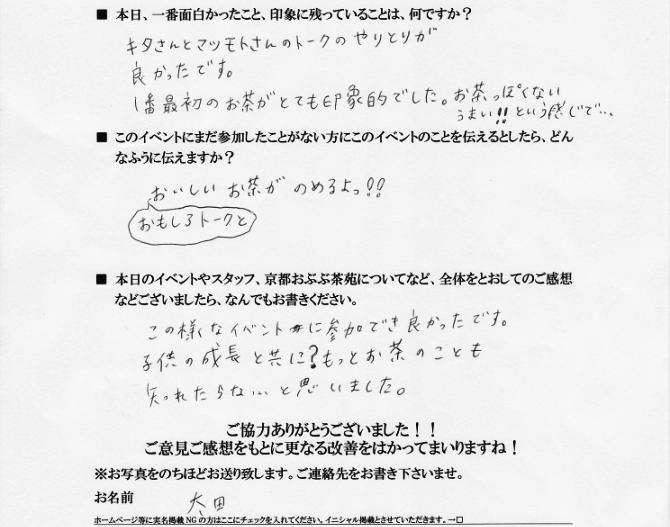 ■ 本日、一番面白かったこと、印象に残っていることは、何ですか？
キタさんとマツモトさんのトークのやりとりが
良かったです。
1番最初のお茶がとても印象的でした。お茶っぽくない
うまい!!という感じで…、
■ このイベントにまだ参加したことがない方にこのイベントのことを伝えるとしたら、どん
なふうに伝えますか？
おいしい お茶が のめるよっ!!
おもしろトークと
■ 本日のイベントやスタッフ、京都おぶぶ茶苑についてなど、全体をとおしてのご感想
などございましたら、なんでもお書きください。
この様なイベントに参加でき良かったです。
子供の成長と共に?もっとお茶のことも
知れたらな…と思いました。
ご協力ありがとうございました！！
ご意見ご感想をもとに更なる改善をはかってまいりますね！
※お写真をのちほどお送り致します。ご連絡先をお書き下さいませ。
お名前 太田
ホームページ等に実名掲載NGの方はここにチェックを入れてください。イニシャル掲載とさせていただきます。→□